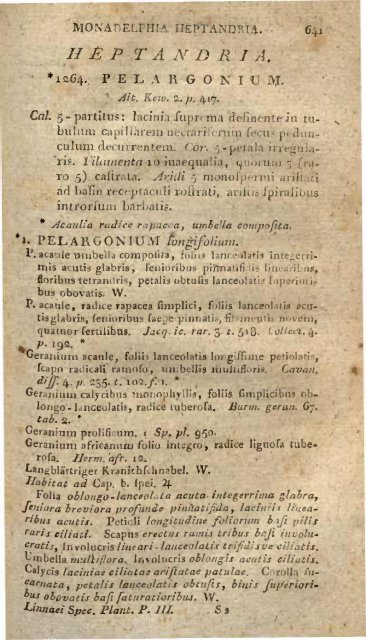 MONADELPHIA HEPTANDRIA. 641
HEPTANDRIA.
*1264. PELARGONIUM.
Ait. Kew. 2. p. 417.
Cal. 5-partitus: lacinia suprema desinente in tu-
bulum capillarem nectariferum secus pedun-
culum decurrentem. Cor. 5-petala irregula-
ris. Filamenta 10 inaequalia, quorum 3 (ra-
ro 5) castrata. Arilli 5 monospermi aristati
ad basin receptaculi rostrati, aristis spiralibus
introrsum barbatis.
* Acaulia radice rapacea, umbella composita.
*1. PELARGONIUM longifolium.
P. acaule umbella composita, foliis lanceolatis integerri-
mis acutis glabris, senioribus pinnatifidis linearibus,
floribus tetrandris, petalis obtusis lanceolatis superiori-
bus obovatis. W.
P. acaule, radice rapacea simplici, foliis lanceolatis acu-
tis glabris, senioribus saepe pinnatis, filamentis novem,
quatuor fertilibus. Jacq. ic. rar. 3. t. 518. Collect. 4.
p. 192. *
Geranium acaule, foliis lanceolatis longissime petiolatis,
scapo radicali ramoso, umbellis multifloris. Cavan.
diss. 4. p. 235. t. 102. f. 1. *
Geranium calycibus monophyllis, foliis simplicibus ob-
longo-lanceolatis, radice tuberosa. Burm. geran. 67.
tab. 2. *
Geranium prolificum. 1 Sp. pl. 950.
Geranium africanum folio integro, radice lignosa tube-
rosa. Herm. afr. 12.
Langblättriger Kranichschnabel. W.
Habitat ad Cap. b. spei. ♃
Folia oblongo-lanceolata acuta integerrima glabra,
seniora breviora profunde pinnatifida, laciniis linea-
ribus acutis. Petioli longitudine foliorum basi pilis
raris ciliati. Scapus erectus ramis tribus basi involu-
cratis, involucris lineari-lanceolatis trifidisve ciliatis.
Umbella multiflora. Involucris oblongis acutis ciliatis.
Calycis laciniae ciliatae aristatae patulae. Corolla in-
carnata, petalis lanceolatis obtusis, binis superiori-
bus obovatis basi saturatioribus. W.
Linnaei Spec. Plant. P. III. S s